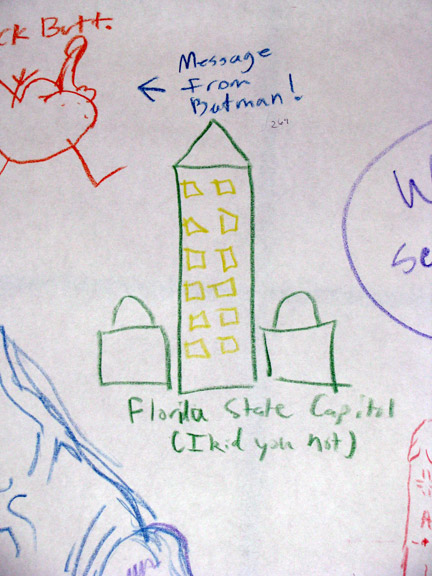 ck Butt.
← Message
From
Batman!
267
W
se
Florida State Capitol
(I kid you not)